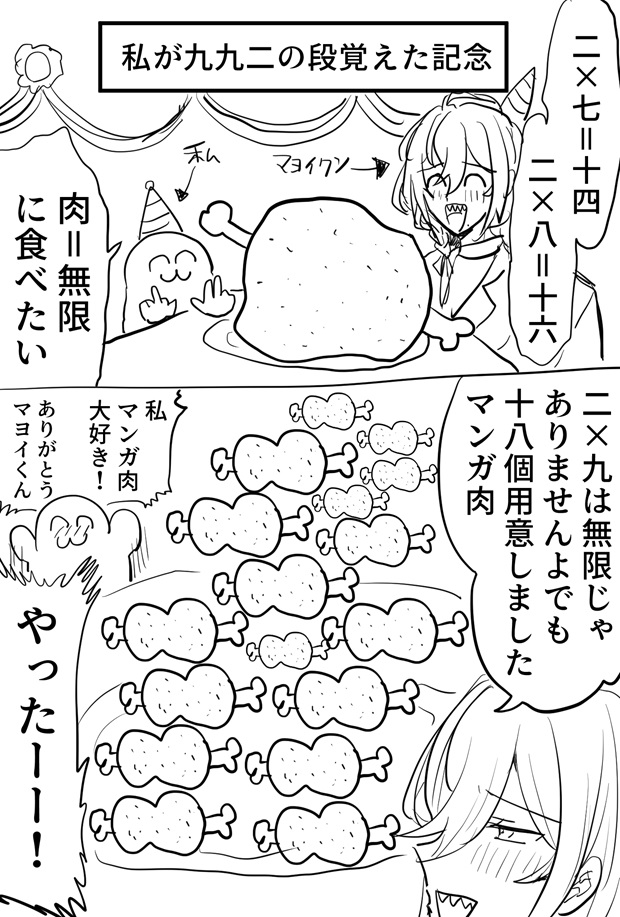 私が九九二の段覚えた記念
二×七＝十四
二×八＝十六
マヨイクン
私
肉＝無限
に食べたい
二×九は無限じゃ
ありませんよでも
十八個用意しました
マンガ肉
私
マンガ肉
大好き！
ありがとう
マヨイくん
やったーー！